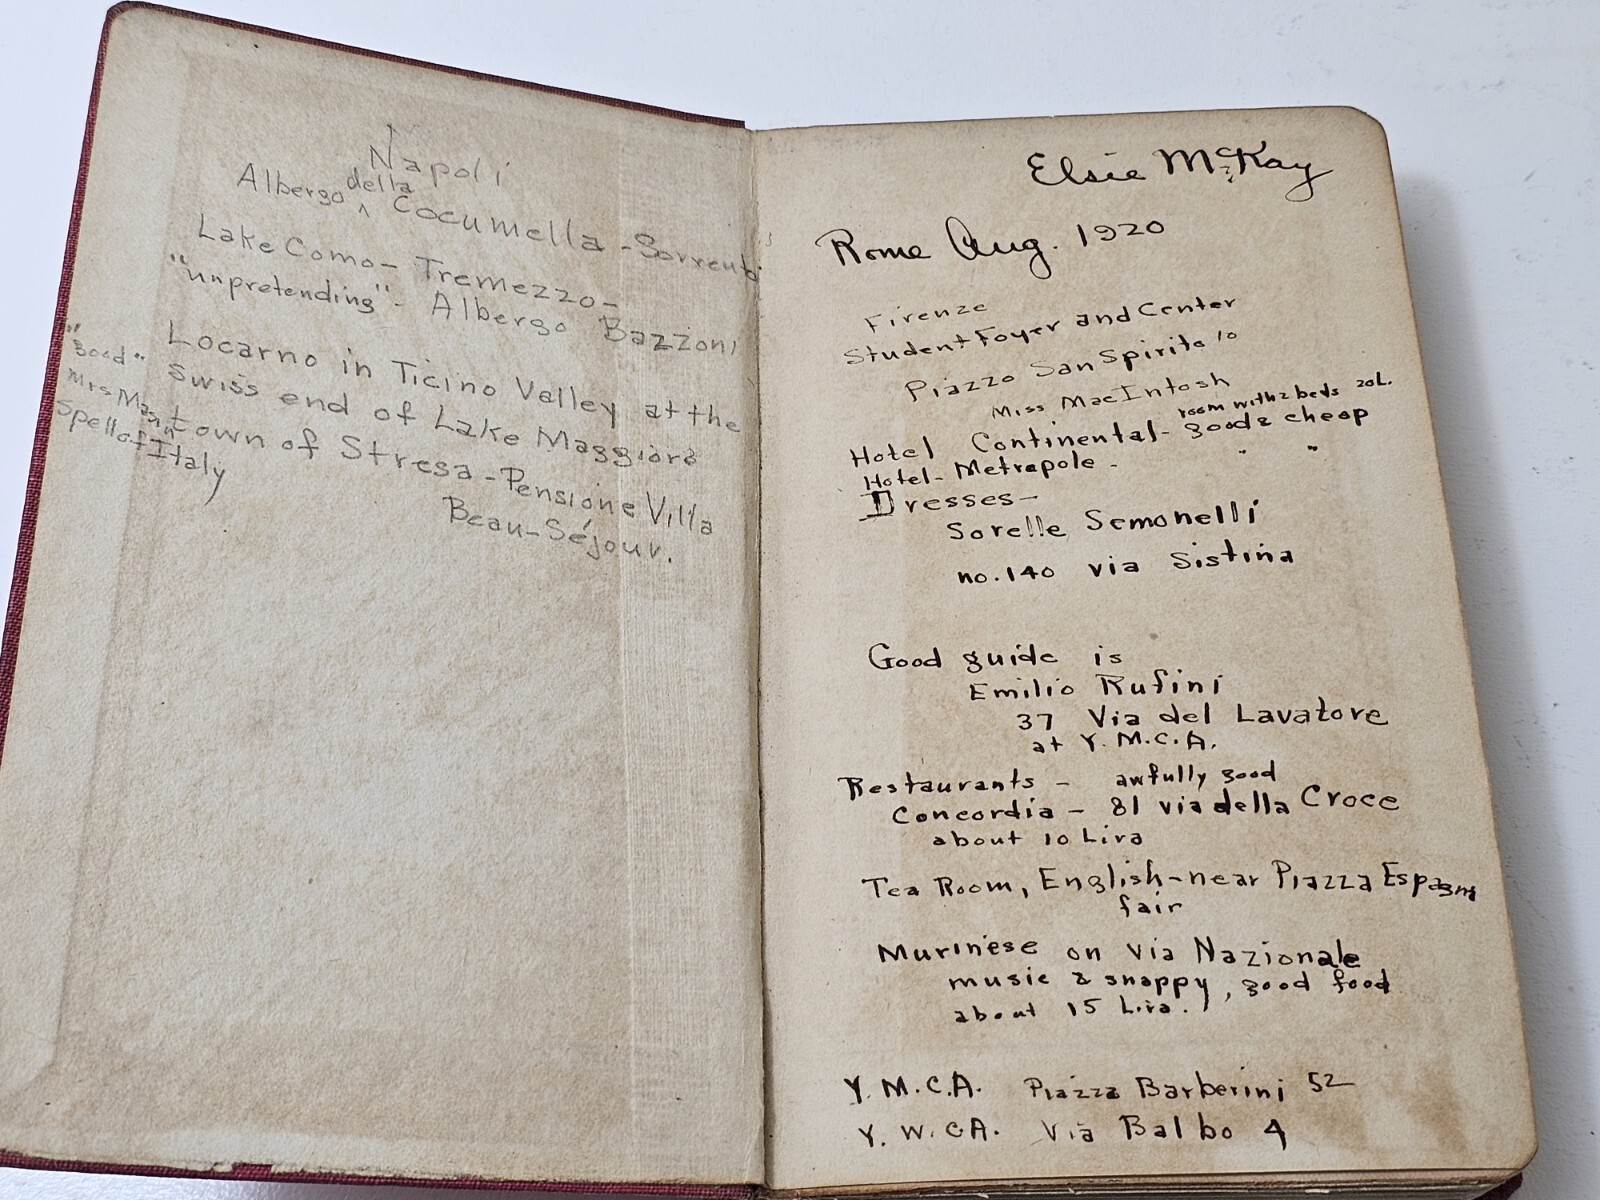 Napoli
Albergo della Cocumella - Sorrento
Lake Como - Tremezzo -
"unpretending" - Albergo Bazzoni
Locarno in Ticino Valley at the
"good" Swiss end of Lake Maggiore
Mrs Mason town of Stresa - Pensione Villa
Spell of Italy Beau-Séjour.
Elsie McKay
Rome Aug. 1920
Firenze
Student Foyer and Center
Piazzo San Spirito 10
Miss MacIntosh
room with 2 beds 20L.
Hotel Continental - good & cheap
Hotel - Metropole - " "
Dresses -
Sorelle Semonelli
no. 140 via Sistina
Good guide is
Emilio Rufini
37 Via del Lavatore
at Y.M.C.A.
Restaurants - awfully good
Concordia - 81 via della Croce
about 10 Lira
Tea Room, English - near Piazza Espagna
fair
Murinese on Via Nazionale
music & snappy, good food
about 15 Lira.
Y.M.C.A. Piazza Barberini 52
Y.W.C.A. Via Balbo 4